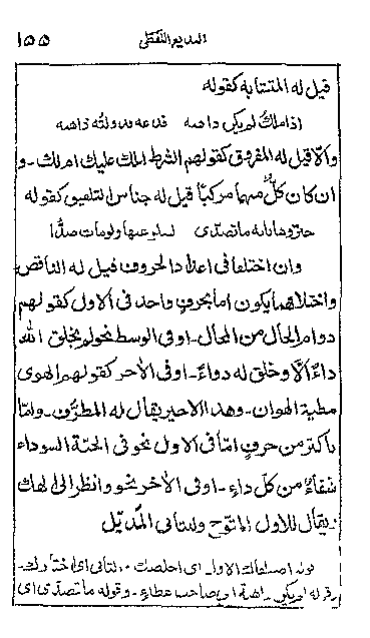 البديع اللفظي ١٥٥
قيل له المتشابه كقوله
اذا ملك لم يكن ذاهبه فدعه فدولته ذاهبه
والّا قيل له المفروق كقولهم الشرط املك عليك ام لك - و
ان كان كلٌّ منهما مركبًا قيل له جناس التلفيق كقوله
وان اختلفا في اعداد الحروف قيل له الناقص
واختلافهما يكون اما بحرفٍ واحد في الاول كقولهم
دوام الحال من المحال - او في الوسط نحو لم يخلق الله
داءً الّا وخلق له دواءً - او في الآخر كقولهم الهوى
مطية الهوان - وهذا الاخير يقال له المطرّف - وامّا
باكثر من حرفٍ امّا في الاول نحو في الحبّة السوداء
شفاءٌ من كل داءٍ - او في الآخر نحو وانظر الى الهك
يقال للاول المتوّج وللثاني المذيّل
قوله
وقوله لم يكن ذاهبة اي صاحب عطاء - وقوله ما تصدّى اي